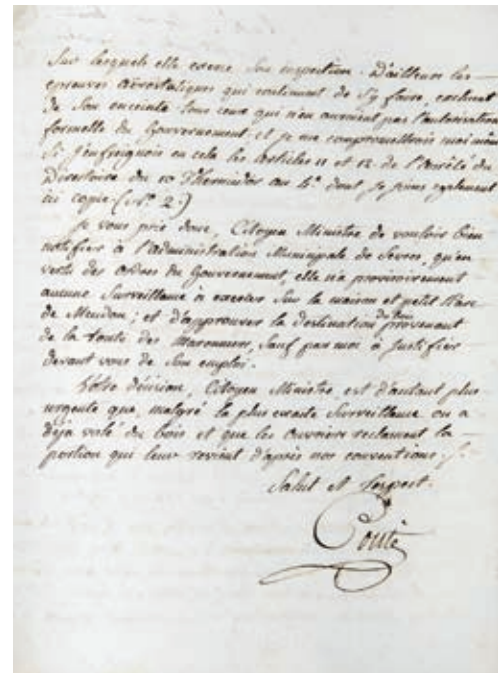 Sur lesquels elle exerce son inspection. D'ailleurs les
epreuves aérostatiques qui continuent de s'y faire, excluent
de son enceinte tous ceux qui n'en auroient pas l'autorisation
formelle du Gouvernement et je me compromettrois moi même
si j'enfreignois en cela les articles 11 et 12 de l'arrêté du
Directoire du 10 Thermidor an 4e. dont je joins également
ici copie (No. 2.)
Je vous prie donc, Citoyen Ministre de vouloir bien
notifier à l'administration Municipale de Sevres, qu'en
vertu des ordres du Gouvernement, elle n'a provisoirement
aucune Surveillance à exercer Sur la maison et petit Parc
de Meudon; et d'approuver la destination du bois provenant
de la tonte des Maronniers, Sauf par moi à justifier
devant vous de Son emploi.
Votre décision, Citoyen Ministre, est d'autant plus
urgente que, malgré la plus exacte Surveillance on a
déja volé du bois et que les Ouvriers reclament la
portion qui leur revient d'après nos conventions.
Salut et respect.
Conté